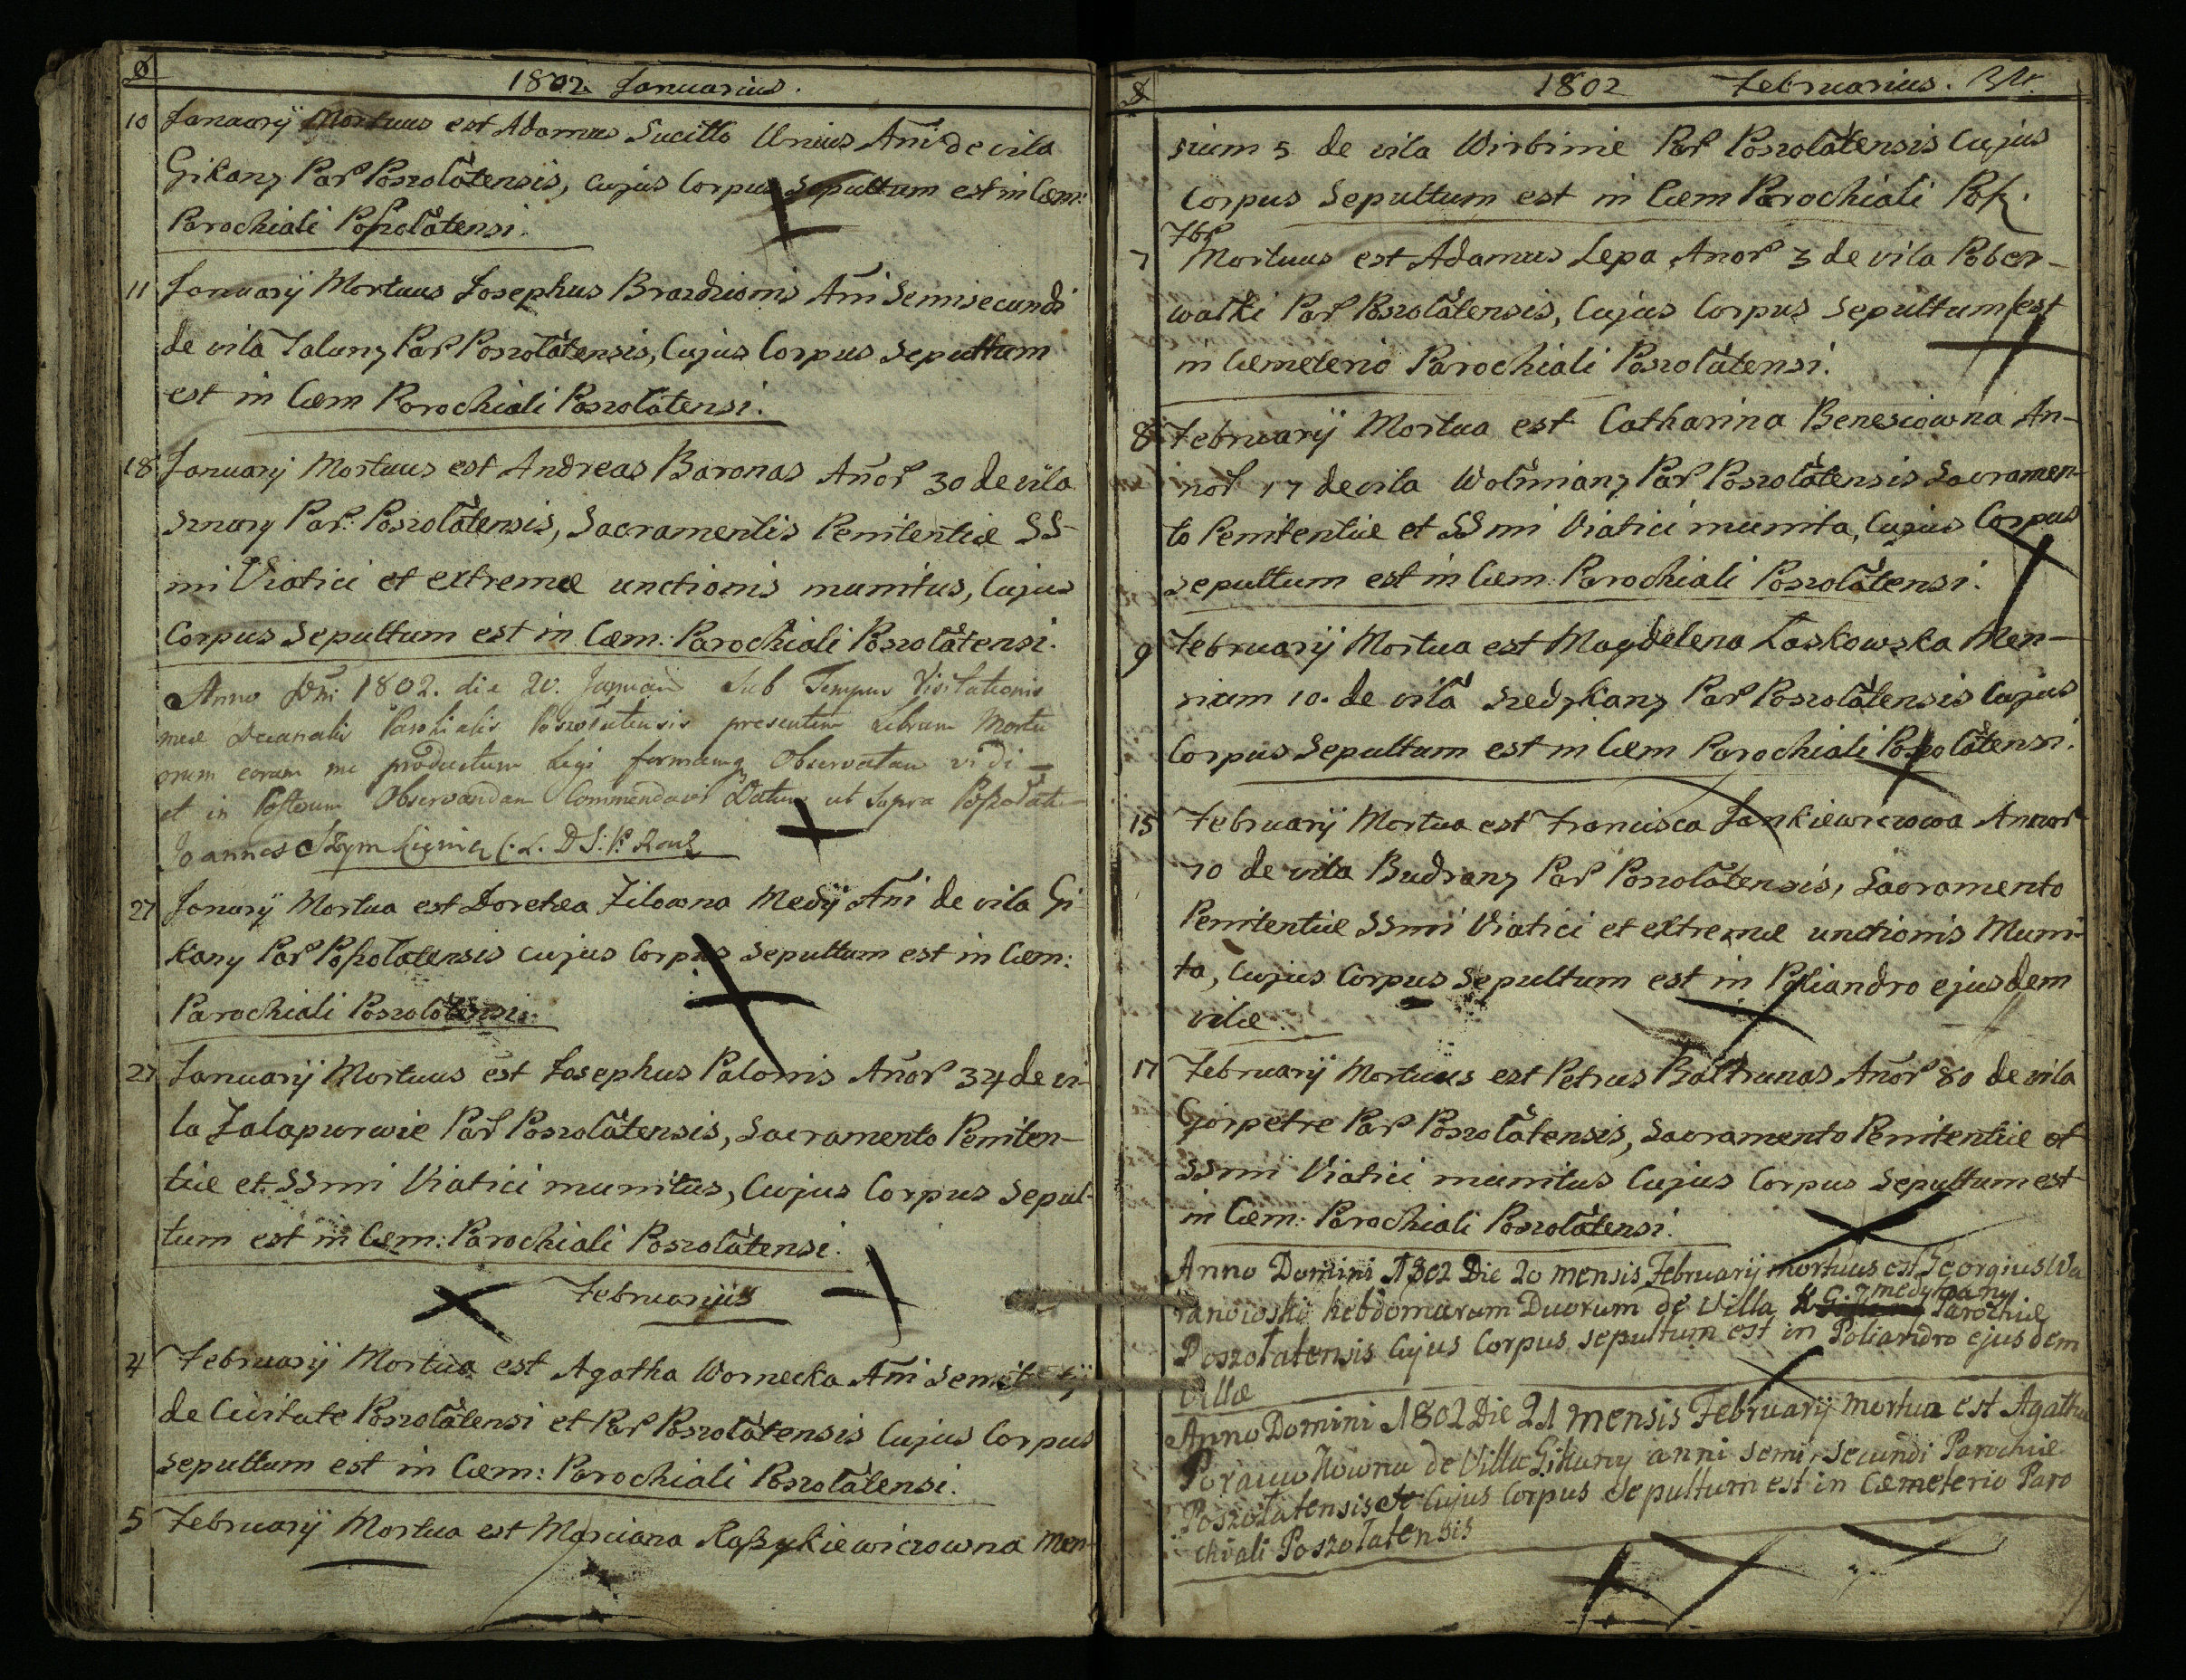 1802. Januarius.
10 Januarij Mortuus est Adamus Sucitto Unius Añi de vila
Gikany Par Poszołatensis, cujus Corpus Sepultum est in Cœm:
Parochiali Poszołatensi.
11 Januarij Mortuus Josephus Brazdzionis Añi Semisecundi
de vila Talunz Par Poszołatensis, Cujus Corpus Sepultum
est in Cœm Parochiali Poszołatensi.
18 Januarij Mortuus est Andreas Baronas Añor 30 de vila
Sznury Par: Poszołatensis, Sacramentis Penitentiæ SS-
mi Viatici et extremæ unctionis munitus, Cujus
Corpus Sepultum est in Cœm: Parochiali Poszołatensi.
Anno Dñi 1802. die 20. Januarii Sub Tempus Visitationis
meæ Decanalis Parohialis Poszołatensis presentem Librum Mortu
orum coram me productum Legi formamq Observatam vidi
et in Posterum Observandam Commendavi Datum ut Supra
Joannes
27 Januarij Mortua est Dorethea Zilowna Medij Añi de vila Gi
kany Par Poszołatensis cujus Corpus Sepultum est in Cœm:
Parochiali Poszołatensi.
27 Januarij Mortuus est Josephus Palonis Añor 34 de vi
la Zalapurwie Par Poszołatensis, Sacramento Peniten-
tiæ et SSmi Viatici munitus, Cujus Corpus Sepul-
tum est in Cœm: Parochiali Poszołatensi.
Februarijs
4 Februarij Mortua est Agatha Wornecka Añi Semitertij
de Civitate Poszołatensi et Par Poszołatensis Cujus Corpus
Sepultum est in Cœm: Parochiali Poszołatensi.
5 Februarij Mortua est Marciana Raszykiewiczowna Men-
1802 Februarius.
sium 5 de vila Wirbinie Par Poszołatensis Cujus
Corpus Sepultum est in Cœm Parochiali Posz.
7 Mortuus est Adamus Lepa Anor 3 de vila Pober-
walki Par Poszołatensis, Cujus Corpus Sepultum est
in Cœmeterio Parochiali Poszołatensi.
8 Februarij Mortua est Catharina Benesiowna An-
nor 17 de vila Wolmianz Par Poszołatensis Sacramen-
to Penitentiæ et SSmi Viatici munita, Cujus Corpus
Sepultum est in Cœm: Parochiali Poszołatensi.
9 Februarij Mortua est Magdelena Laskowska Men-
sium 10. de vila Szedzkanz Par Poszołatensis Cujus
Corpus Sepultum est in Cœm Parochiali Poszołatensi.
15 Februarij Mortua est Francisca Jankiewiczowa Annor
70 de vila Budranz Par Poszołatensis, Sacramento
Penitentiæ SSmi Viatici et extremæ unctionis Muni-
ta, Cujus Corpus Sepultum est in Poliandro ejusdem
vilæ.
17 Februarij Mortuus est Petrus Baltrunas Añor 80 de vila
Gjrpetre Par Poszołatensis, Sacramento Penitentiæ et
SSmi Viatici munitus Cujus Corpus Sepultum est
in Cœm: Parochiali Poszołatensi.
Anno Domini 1802 Die 20 mensis Februarij mortuus est Georgius Wa
ranowski hebdomarum Duorum de Villa Parochiæ
Poszołatensis Cujus Corpus sepultum est in Poliandro ejusdem
villæ
Anno Domini 1802 Die 21 mensis Februarij mortua est Agatha
de Villa Gikany anni semi secundi Parochiæ
Poszołatensis Cujus Corpus Sepultum est in Cæmeterio Paro
chiali Poszołatensis